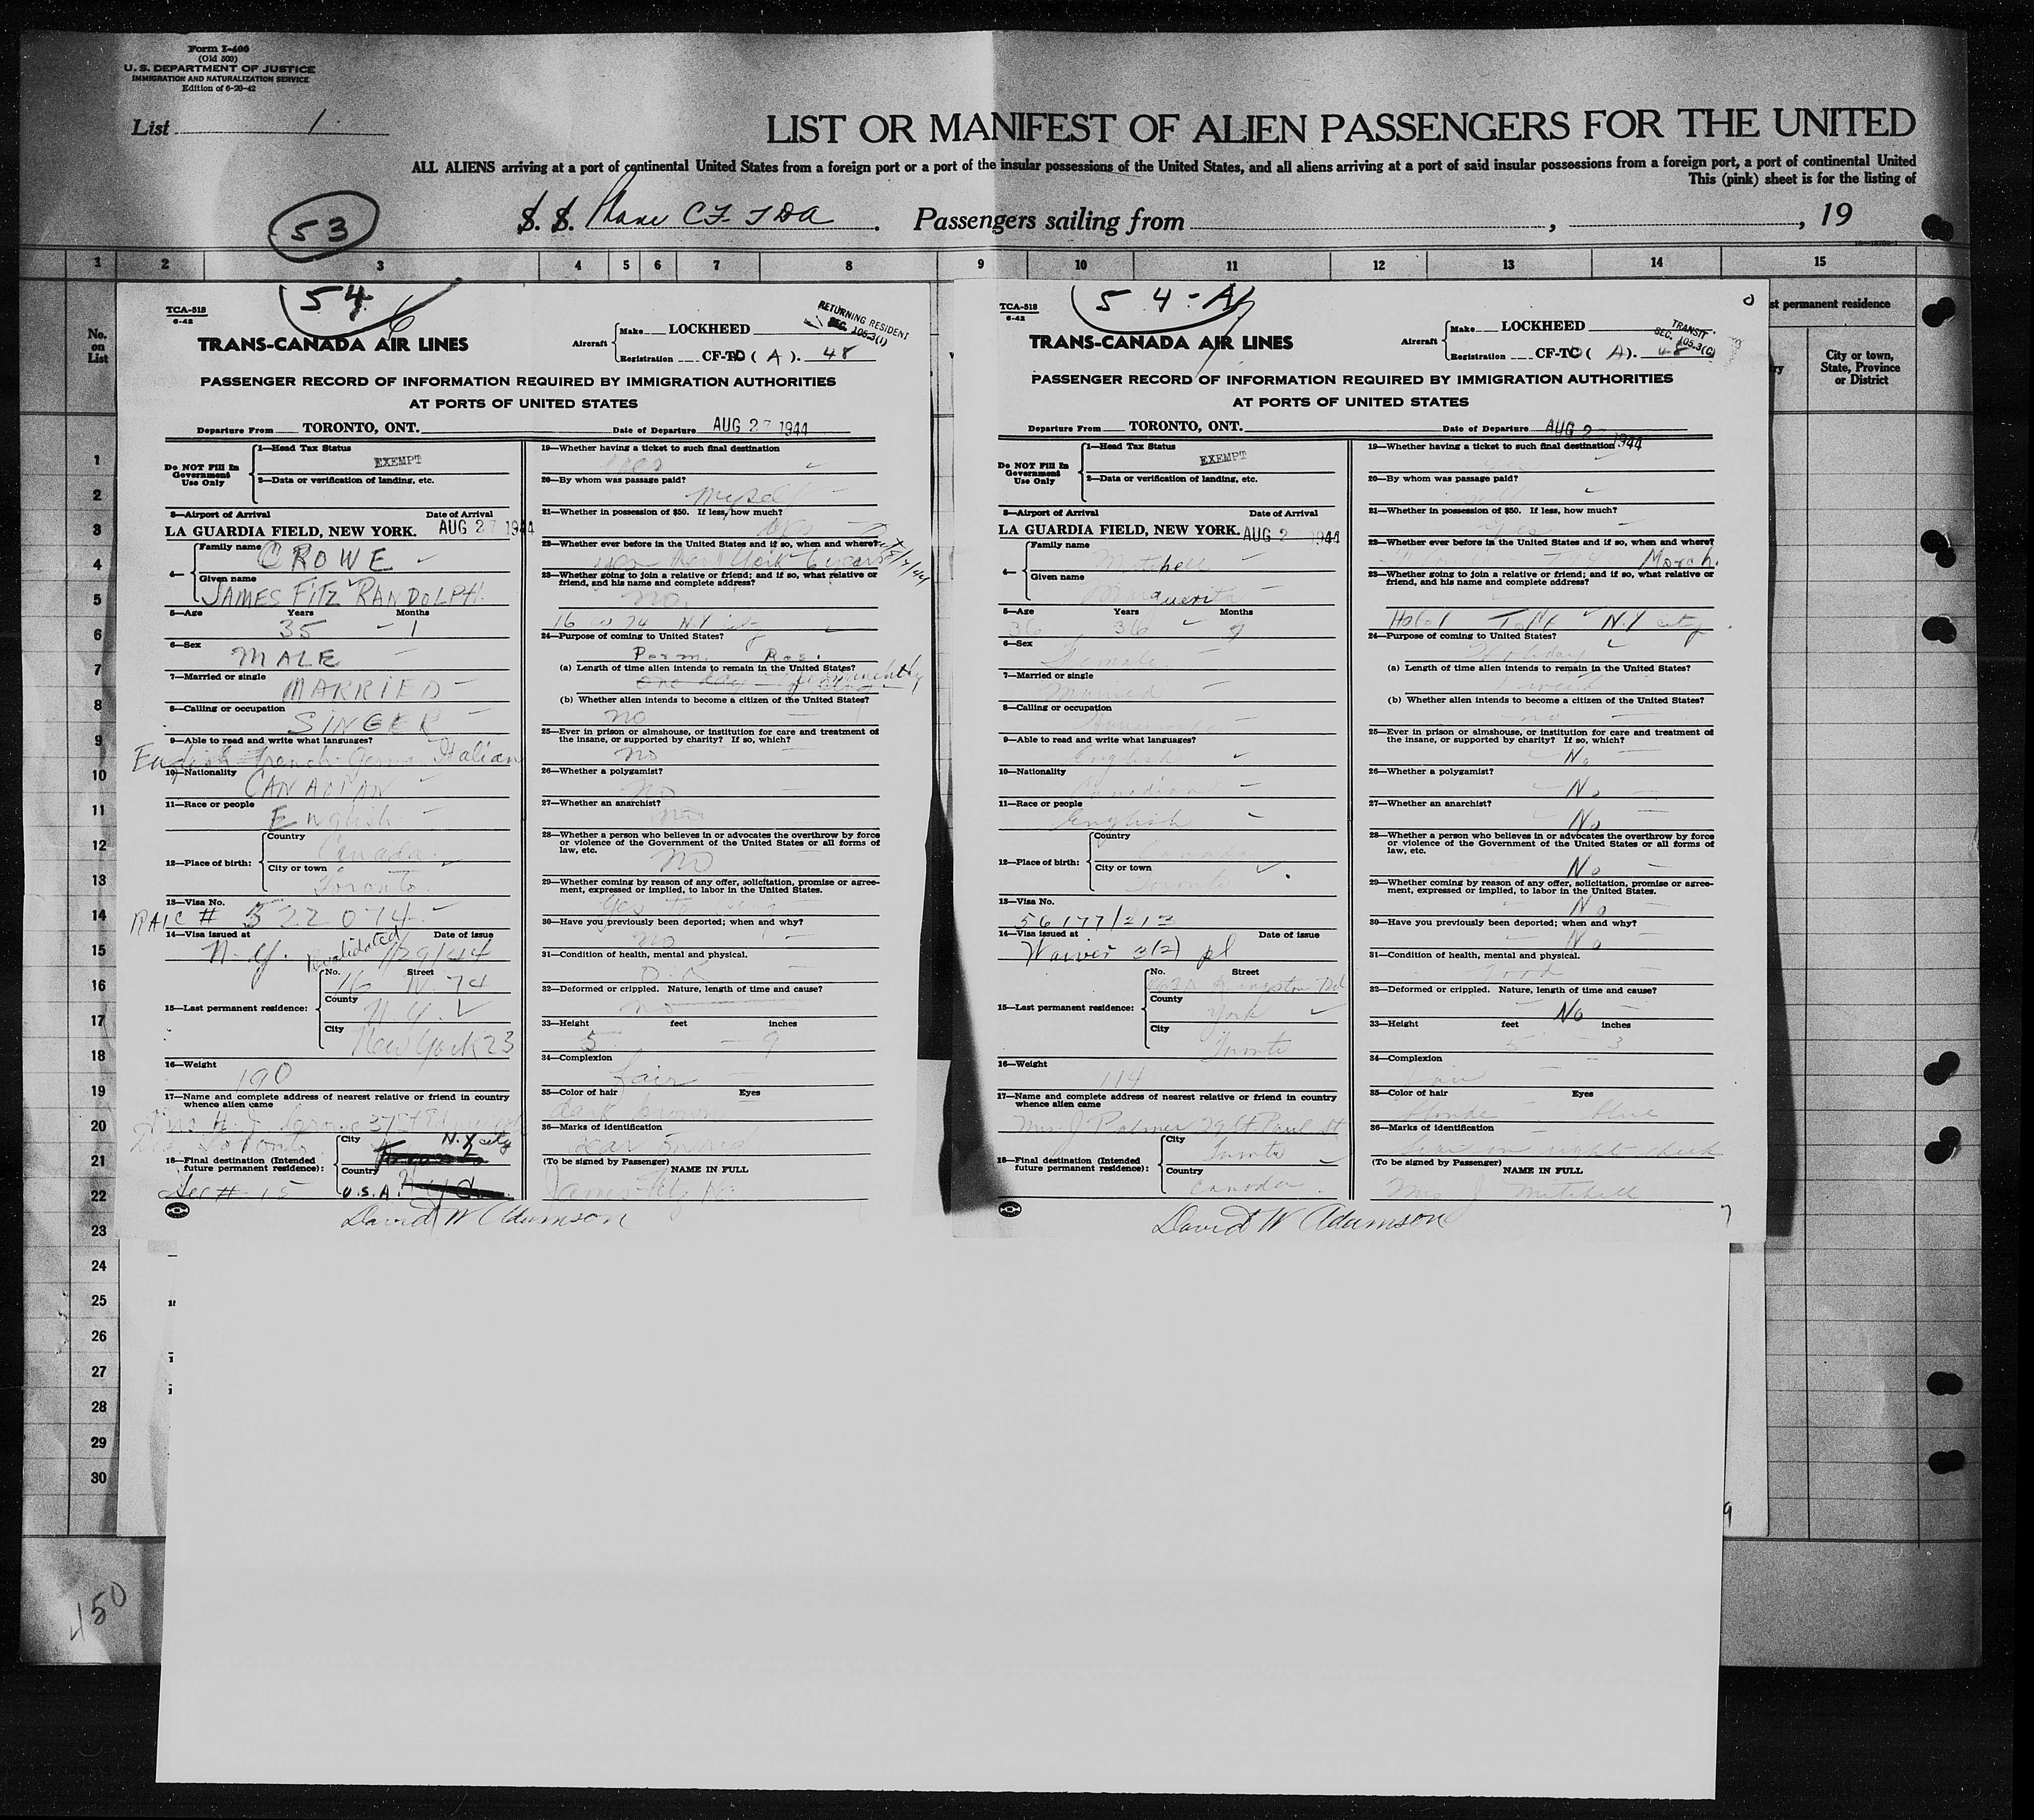 Form I-466
(Old 500)
U. S. DEPARTMENT OF JUSTICE
IMMIGRATION AND NATURALIZATION SERVICE
Edition of 6-20-42
List 1.
LIST OR MANIFEST OF ALIEN PASSENGERS FOR THE UNITED
ALL ALIENS arriving at a port of continental United States from a foreign port or a port of the insular possessions of the United States, and all aliens arriving at a port of said insular possessions from a foreign port, a port of continental United
This (pink) sheet is for the listing of
53
S. S. Plane CF-TDA. Passengers sailing from , , 19
1 2 3 4 5 6 7 8 9 10 11 12 13 14 15
No. on List
st permanent residence
ry
City or town, State, Province or District
54
TCA-518
6-42
RETURNING RESIDENT
SEC. 105.3(1)
TRANS-CANADA AIR LINES
Aircraft Make LOCKHEED
Registration CF-TC ( A ). 48
PASSENGER RECORD OF INFORMATION REQUIRED BY IMMIGRATION AUTHORITIES
AT PORTS OF UNITED STATES
Departure From TORONTO, ONT. Date of Departure AUG 27 1944
Do NOT Fill In Government Use Only
1—Head Tax Status
EXEMPT
2—Data or verification of landing, etc.
3—Airport of Arrival Date of Arrival
LA GUARDIA FIELD, NEW YORK. AUG 27 1944
4— Family name CROWE
Given name
JAMES FITZ RANDOLPH.
5—Age Years Months
35 - 1
6—Sex
MALE
7—Married or single
MARRIED
8—Calling or occupation
SINGER
9—Able to read and write what languages?
English French Italian
10—Nationality
CANADIAN
11—Race or people
English
12—Place of birth: Country
Canada
City or town
Toronto
13—Visa No.
# 522074
14—Visa issued at Date of issue
N.Y. Revalidated 1/29/44
15—Last permanent residence: No. Street
16 W 74
County
N.Y.
City
New York 23
16—Weight
190
17—Name and complete address of nearest relative or friend in country whence alien came
18—Final destination (Intended future permanent residence): City N.Y. city
Country
U.S.A.
19—Whether having a ticket to such final destination
yes
20—By whom was passage paid?
myself
21—Whether in possession of $50. If less, how much?
yes
22—Whether ever before in the United States and if so, when and where?
yes New York 6 years
23—Whether going to join a relative or friend; and if so, what relative or friend, and his name and complete address?
no.
16 W 74 N.Y city
24—Purpose of coming to United States?
Perm. Res.
(a) Length of time alien intends to remain in the United States?
one day permanently
(b) Whether alien intends to become a citizen of the United States?
no
25—Ever in prison or almshouse, or institution for care and treatment of the insane, or supported by charity? If so, which?
no
26—Whether a polygamist?
no
27—Whether an anarchist?
no
28—Whether a person who believes in or advocates the overthrow by force or violence of the Government of the United States or all forms of law, etc.
no
29—Whether coming by reason of any offer, solicitation, promise or agreement, expressed or implied, to labor in the United States.
yes to sing
30—Have you previously been deported; when and why?
no
31—Condition of health, mental and physical.
O.K.
32—Deformed or crippled. Nature, length of time and cause?
no
33—Height feet inches
5 - 9
34—Complexion
fair
35—Color of hair Eyes
dark brown
36—Marks of identification
(To be signed by Passenger) NAME IN FULL
James Fitz
David W Adamson
54-A
TCA-518
6-42
TRANSIT
SEC. 105.3(C)
TRANS-CANADA AIR LINES
Aircraft Make LOCKHEED
Registration CF-TC ( A). 48
PASSENGER RECORD OF INFORMATION REQUIRED BY IMMIGRATION AUTHORITIES
AT PORTS OF UNITED STATES
Departure From TORONTO, ONT. Date of Departure AUG 2 1944
Do NOT Fill In Government Use Only
1—Head Tax Status
EXEMPT
2—Data or verification of landing, etc.
3—Airport of Arrival Date of Arrival
LA GUARDIA FIELD, NEW YORK. AUG 2 1944
4— Family name
Mitchell
Given name
5—Age Years Months
36 36 9
6—Sex
Female
7—Married or single
Married
8—Calling or occupation
Housewife
9—Able to read and write what languages?
English
10—Nationality
Canadian
11—Race or people
English
12—Place of birth: Country
Canada
City or town
Toronto
13—Visa No.
56177/212
14—Visa issued at Date of issue
Waiver 3(2) pl
15—Last permanent residence: No. Street
Kingston Rd
County
York
City
Toronto
16—Weight
114
17—Name and complete address of nearest relative or friend in country whence alien came
Mrs J Palmer 29 St. Paul St
18—Final destination (Intended future permanent residence): City
Toronto
Country
Canada
19—Whether having a ticket to such final destination
20—By whom was passage paid?
21—Whether in possession of $50. If less, how much?
Yes
22—Whether ever before in the United States and if so, when and where?
March.
23—Whether going to join a relative or friend; and if so, what relative or friend, and his name and complete address?
Hotel Taft N.Y city
24—Purpose of coming to United States?
Holiday
(a) Length of time alien intends to remain in the United States?
(b) Whether alien intends to become a citizen of the United States?
no
25—Ever in prison or almshouse, or institution for care and treatment of the insane, or supported by charity? If so, which?
No
26—Whether a polygamist?
No
27—Whether an anarchist?
No
28—Whether a person who believes in or advocates the overthrow by force or violence of the Government of the United States or all forms of law, etc.
No
29—Whether coming by reason of any offer, solicitation, promise or agreement, expressed or implied, to labor in the United States.
No
30—Have you previously been deported; when and why?
No
31—Condition of health, mental and physical.
Good
32—Deformed or crippled. Nature, length of time and cause?
No
33—Height feet inches
5 3
34—Complexion
35—Color of hair Eyes
Blonde blue
36—Marks of identification
right cheek
(To be signed by Passenger) NAME IN FULL
Mrs J Mitchell
David W Adamson
1
2
3
4
5
6
7
8
9
10
11
12
13
14
15
16
17
18
19
20
21
22
23
24
25
26
27
28
29
30
450